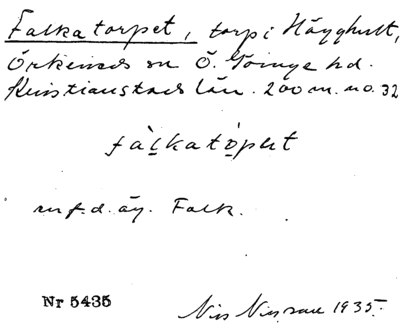 Falkatorpet, torp i Hägghult,
Örkeneds sn Ö. Göinge hd.
Kristianstads län. 200 m. no. 32
fàl̲katò̲pet
m. f. d. äg. Falk.
Nr 5435 Nils Nilsson 1935.